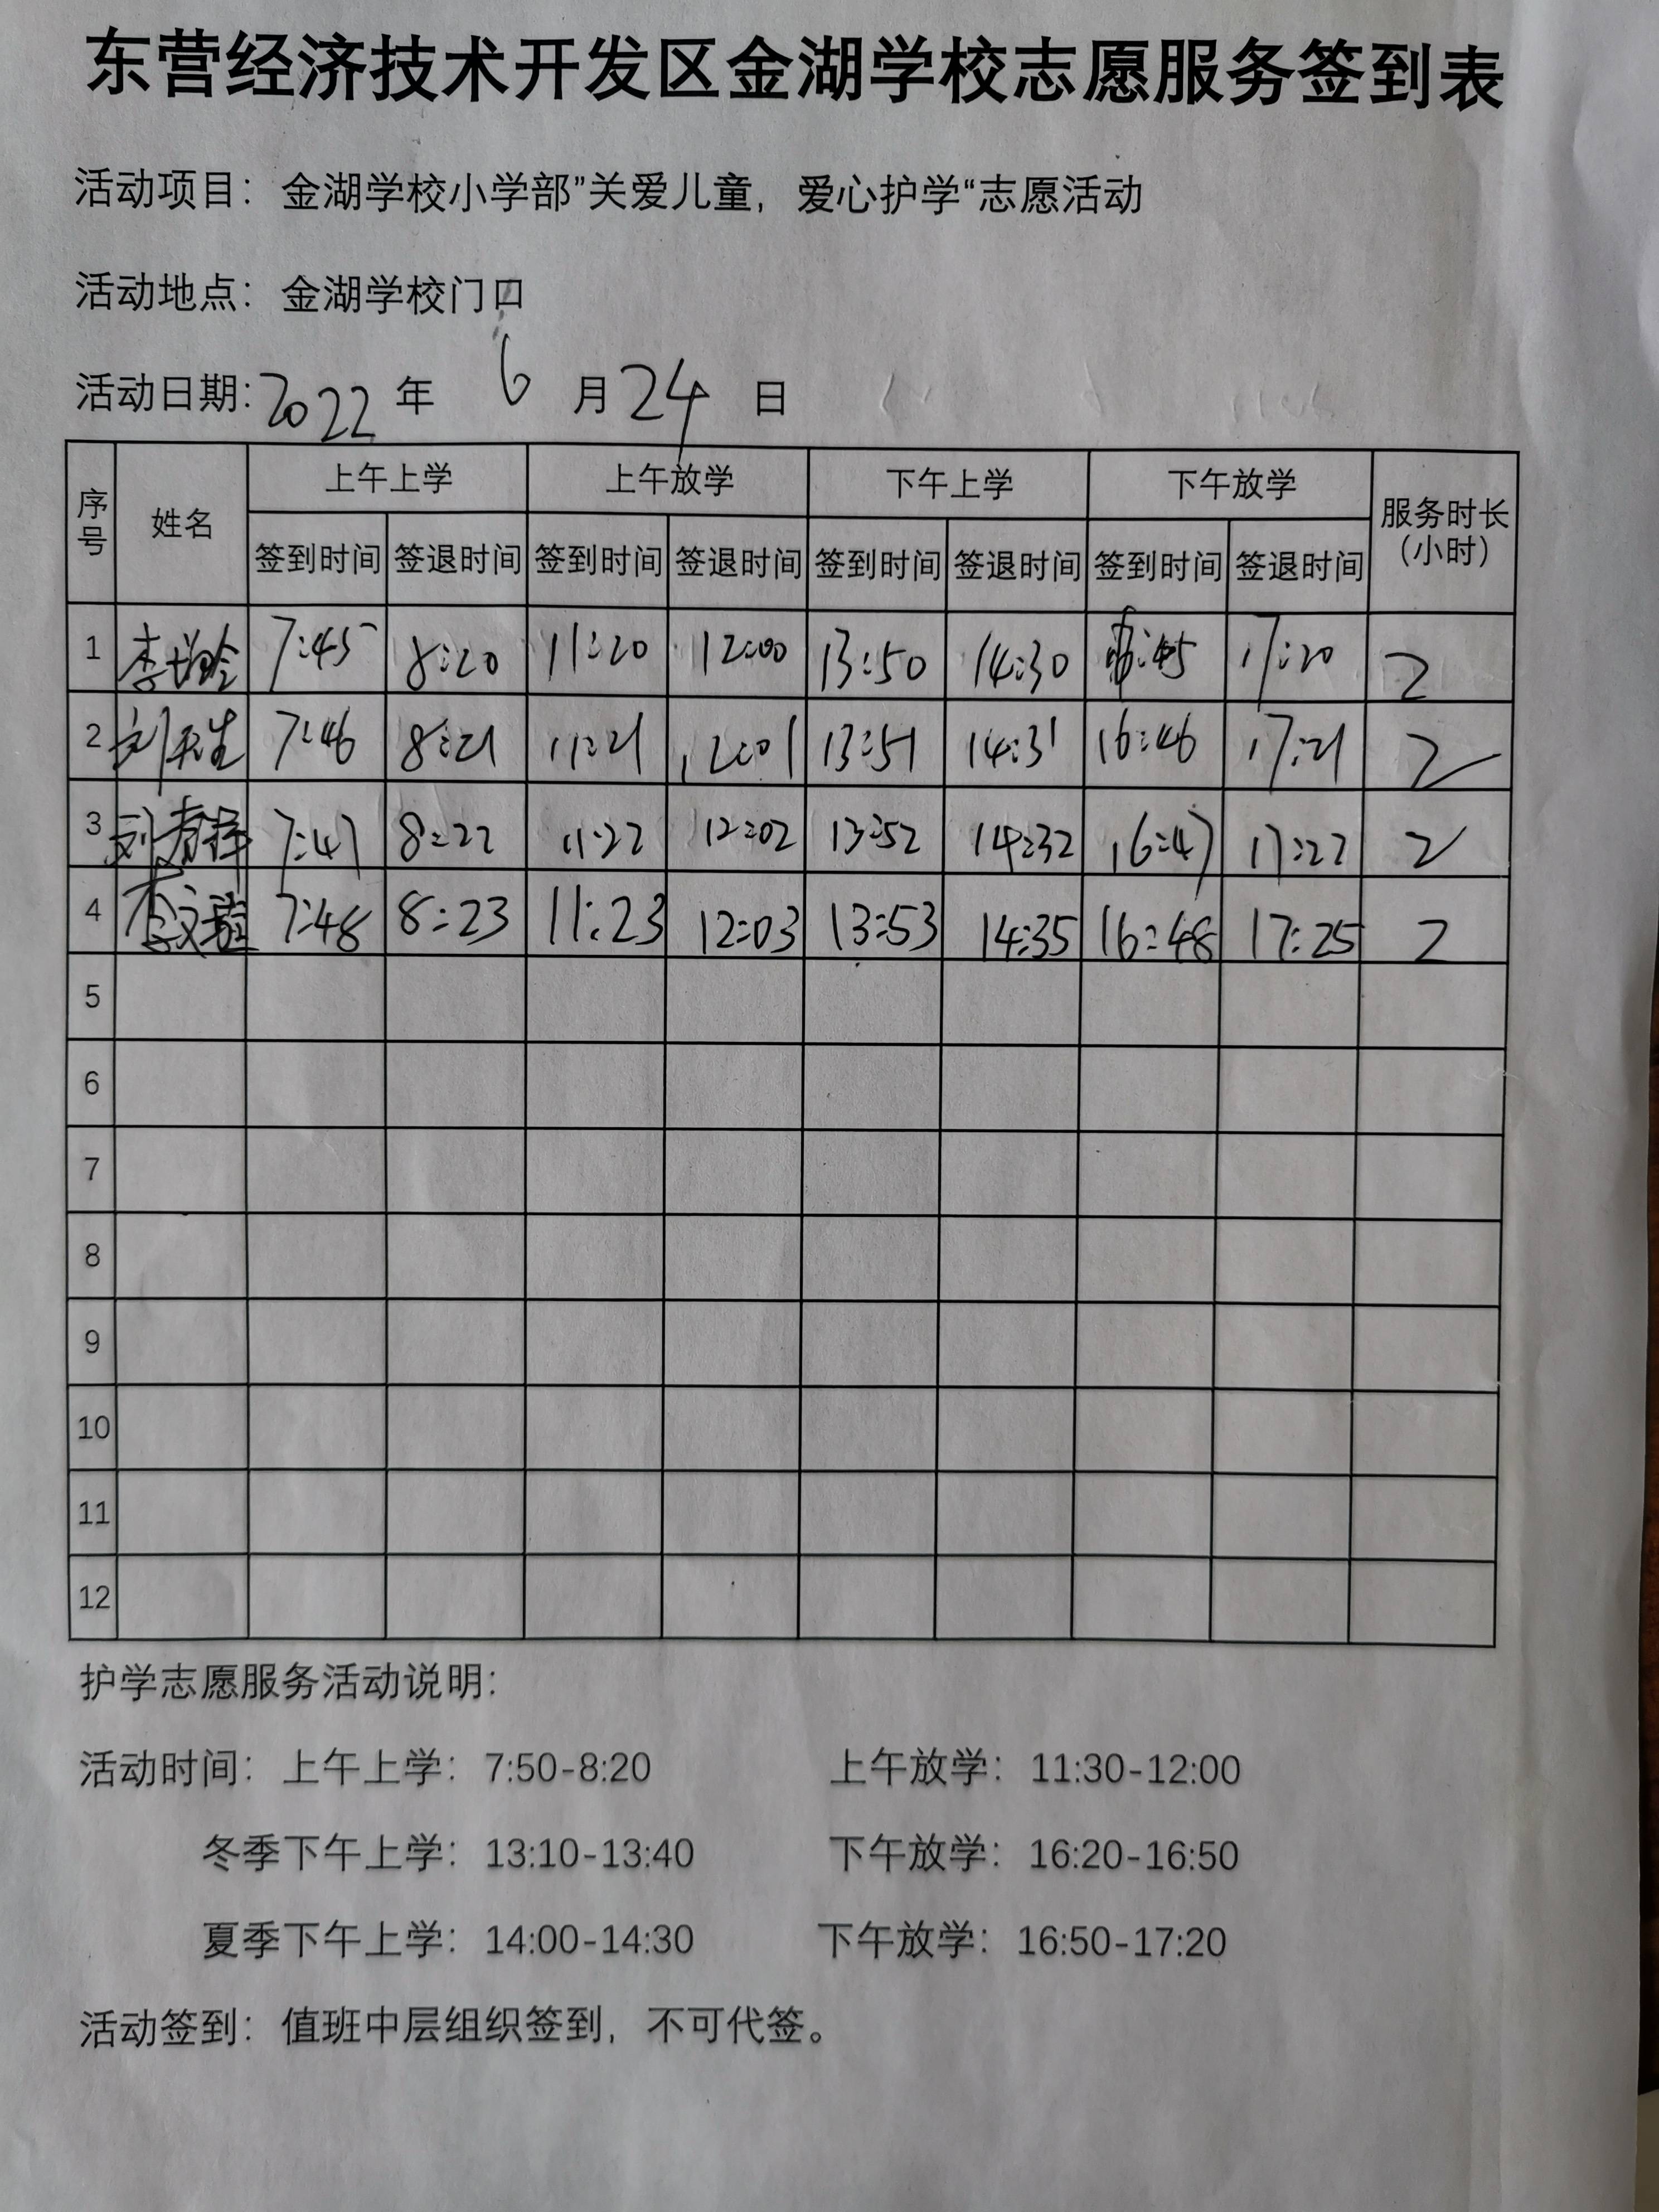 东营经济技术开发区金湖学校志愿服务签到表
活动项目：金湖学校小学部”关爱儿童，爱心护学“志愿活动
活动地点：金湖学校门口
活动日期：2022 年 6 月 24 日
序号 姓名 上午上学 上午放学 下午上学 下午放学 服务时长（小时）
签到时间 签退时间 签到时间 签退时间 签到时间 签退时间 签到时间 签退时间
1 李 7:45 8:20 11:20 12:00 13:50 14:30 17:20 2
2 刘 7:46 8:21 11:21 12:01 13:51 14:31 16:46 17:21 2
3 刘 7:47 8:22 11:22 12:02 13:52 14:32 16:47 17:22 2
4 李文 7:48 8:23 11:23 12:03 13:53 14:35 16:48 17:25 2
5
6
7
8
9
10
11
12
护学志愿服务活动说明：
活动时间：上午上学：7:50-8:20 上午放学：11:30-12:00
冬季下午上学：13:10-13:40 下午放学：16:20-16:50
夏季下午上学：14:00-14:30 下午放学：16:50-17:20
活动签到：值班中层组织签到，不可代签。